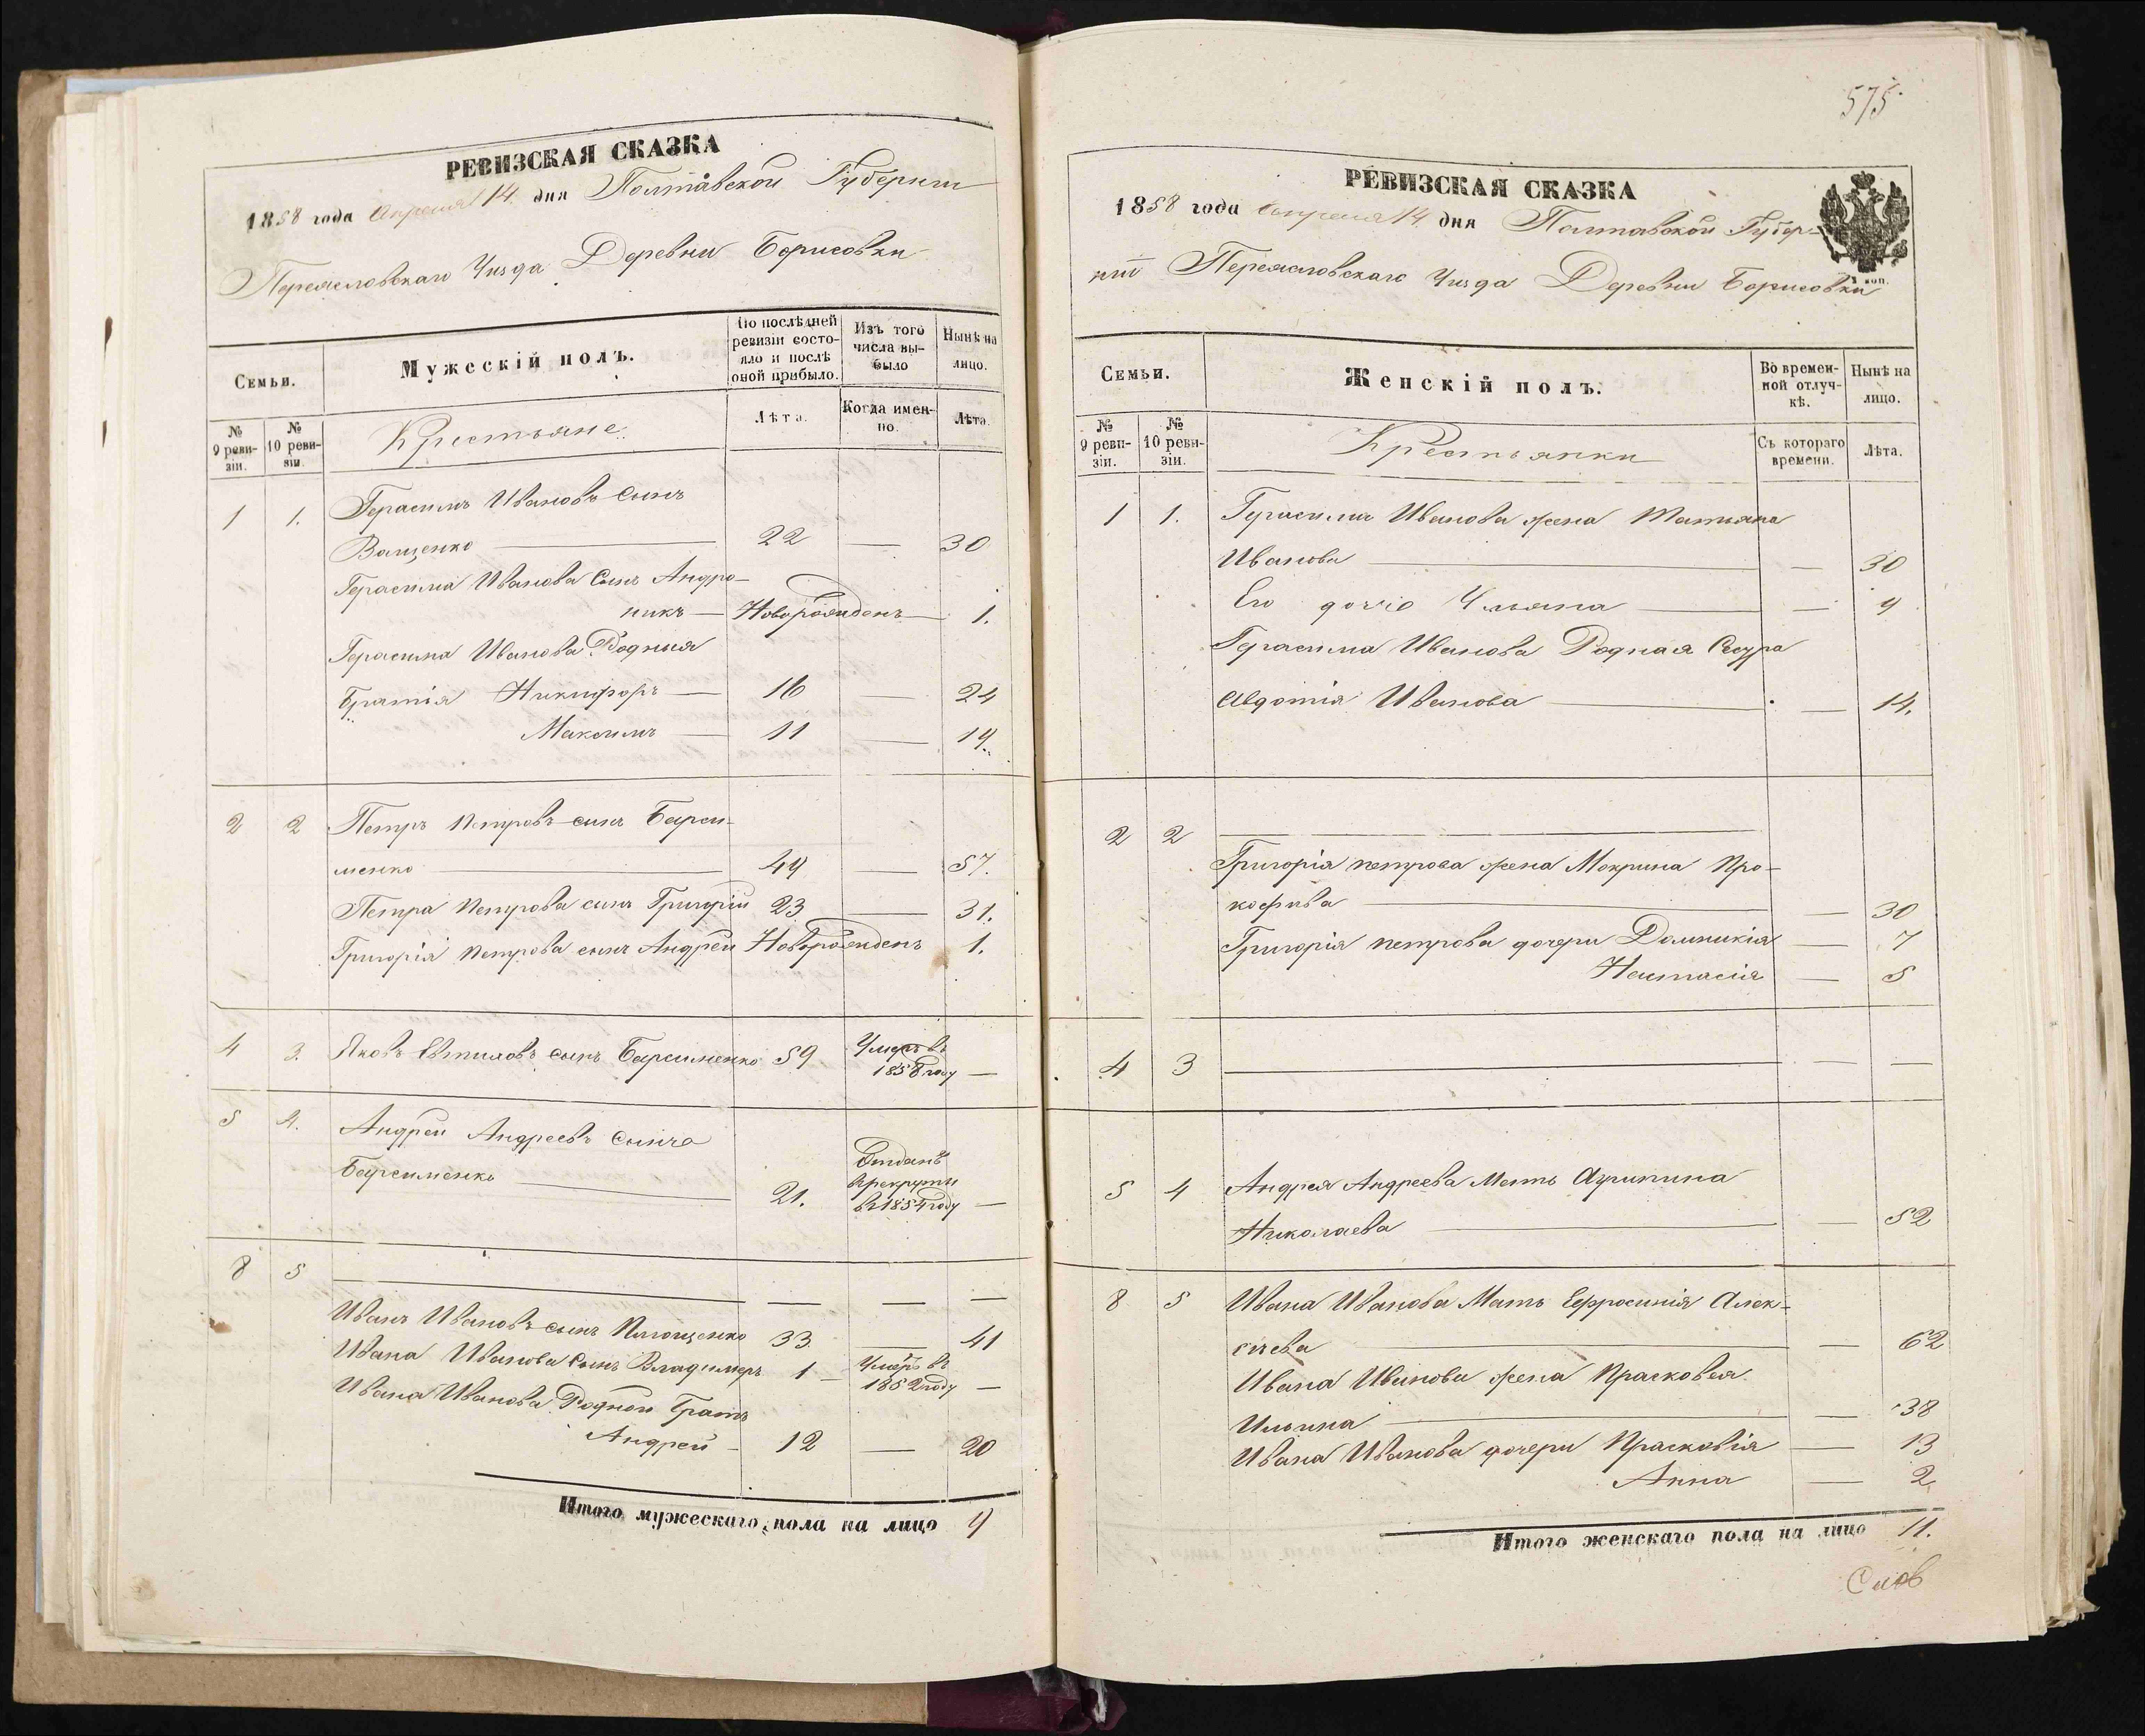 РЕВИЗСКАЯ СКАЗКА
1858 года Апреля 14 дня Полтавской Губернии
Переясловскаго Уезда Деревни Борисовки
Семьи.
Мужескій полъ.
По послѣдней ревизіи состояло и послѣ оной прибыло.
Изъ того числа выбыло
Нынѣ на лицо.
№ 9 ревизіи.
№ 10 ревизіи.
Крестьяне
Лѣта.
Когда именно.
Лѣта.
1 1. Герасимъ Ивановъ Сынъ
Ващенко 22 — 30
Герасима Иванова Сынъ Андро-
никъ — Новорожденъ — 1.
Герасима Иванова Родныя
Братія Никифоръ — 16 — 24
Максимъ — 11 — 19.
2 2 Петръ Петровъ сынъ Барси-
менко 49 — 57.
Петра Петрова сынъ Григорій 23 — 31.
Григорія Петрова сынъ Андрей Новорожденъ 1.
4 3. Яковъ сынъ Барсименко 59 Умеръ въ
1858 году —
5 4. Андрей Андреевъ Сынъ
Барсименко 21. Отданъ
в рекруты
въ 1854 году —
8 5 — — —
Иванъ Ивановъ сынъ Плющенко 33. — 41
Ивана Иванова Сынъ Владимеръ 1 — Умеръ въ
1852 году —
Ивана Иванова Родной Братъ
Андрей — 12 — 20
Итого мужескаго пола на лицо 9
575.
РЕВИЗСКАЯ СКАЗКА
1858 года Апреля 14 дня Полтавской Губер-
ніи Переясловскаго Уезда Деревни Борисовки
коп.
Семьи.
Женскій полъ.
Во временной отлучкѣ.
Нынѣ на лицо.
№ 9 ревизіи.
№ 10 ревизіи.
Крестьянки
Съ котораго времени.
Лѣта.
1 1. Герасима Иванова жена Татьяна
Иванова — 30
Его дочь Ульяна — 9
Герасима Иванова Родная Сестра
Авдотія Иванова — 14.
2 2
Григорія петрова жена Мокрина Про-
кофьева — 30
Григорія петрова дочери Домникія — 7
Настасія — 5
4 3 — —
5 4 Андрея Андреева Мать Агрипина
Николаева — 52
8 5 Ивана Иванова Мать Ефросинія Алек-
сѣева — 62
Ивана Иванова жена Прасковья
Ильина — 38
Ивана Иванова дочери Прасковія — 13
Анна — 2
Итого женскаго пола на лицо 11.